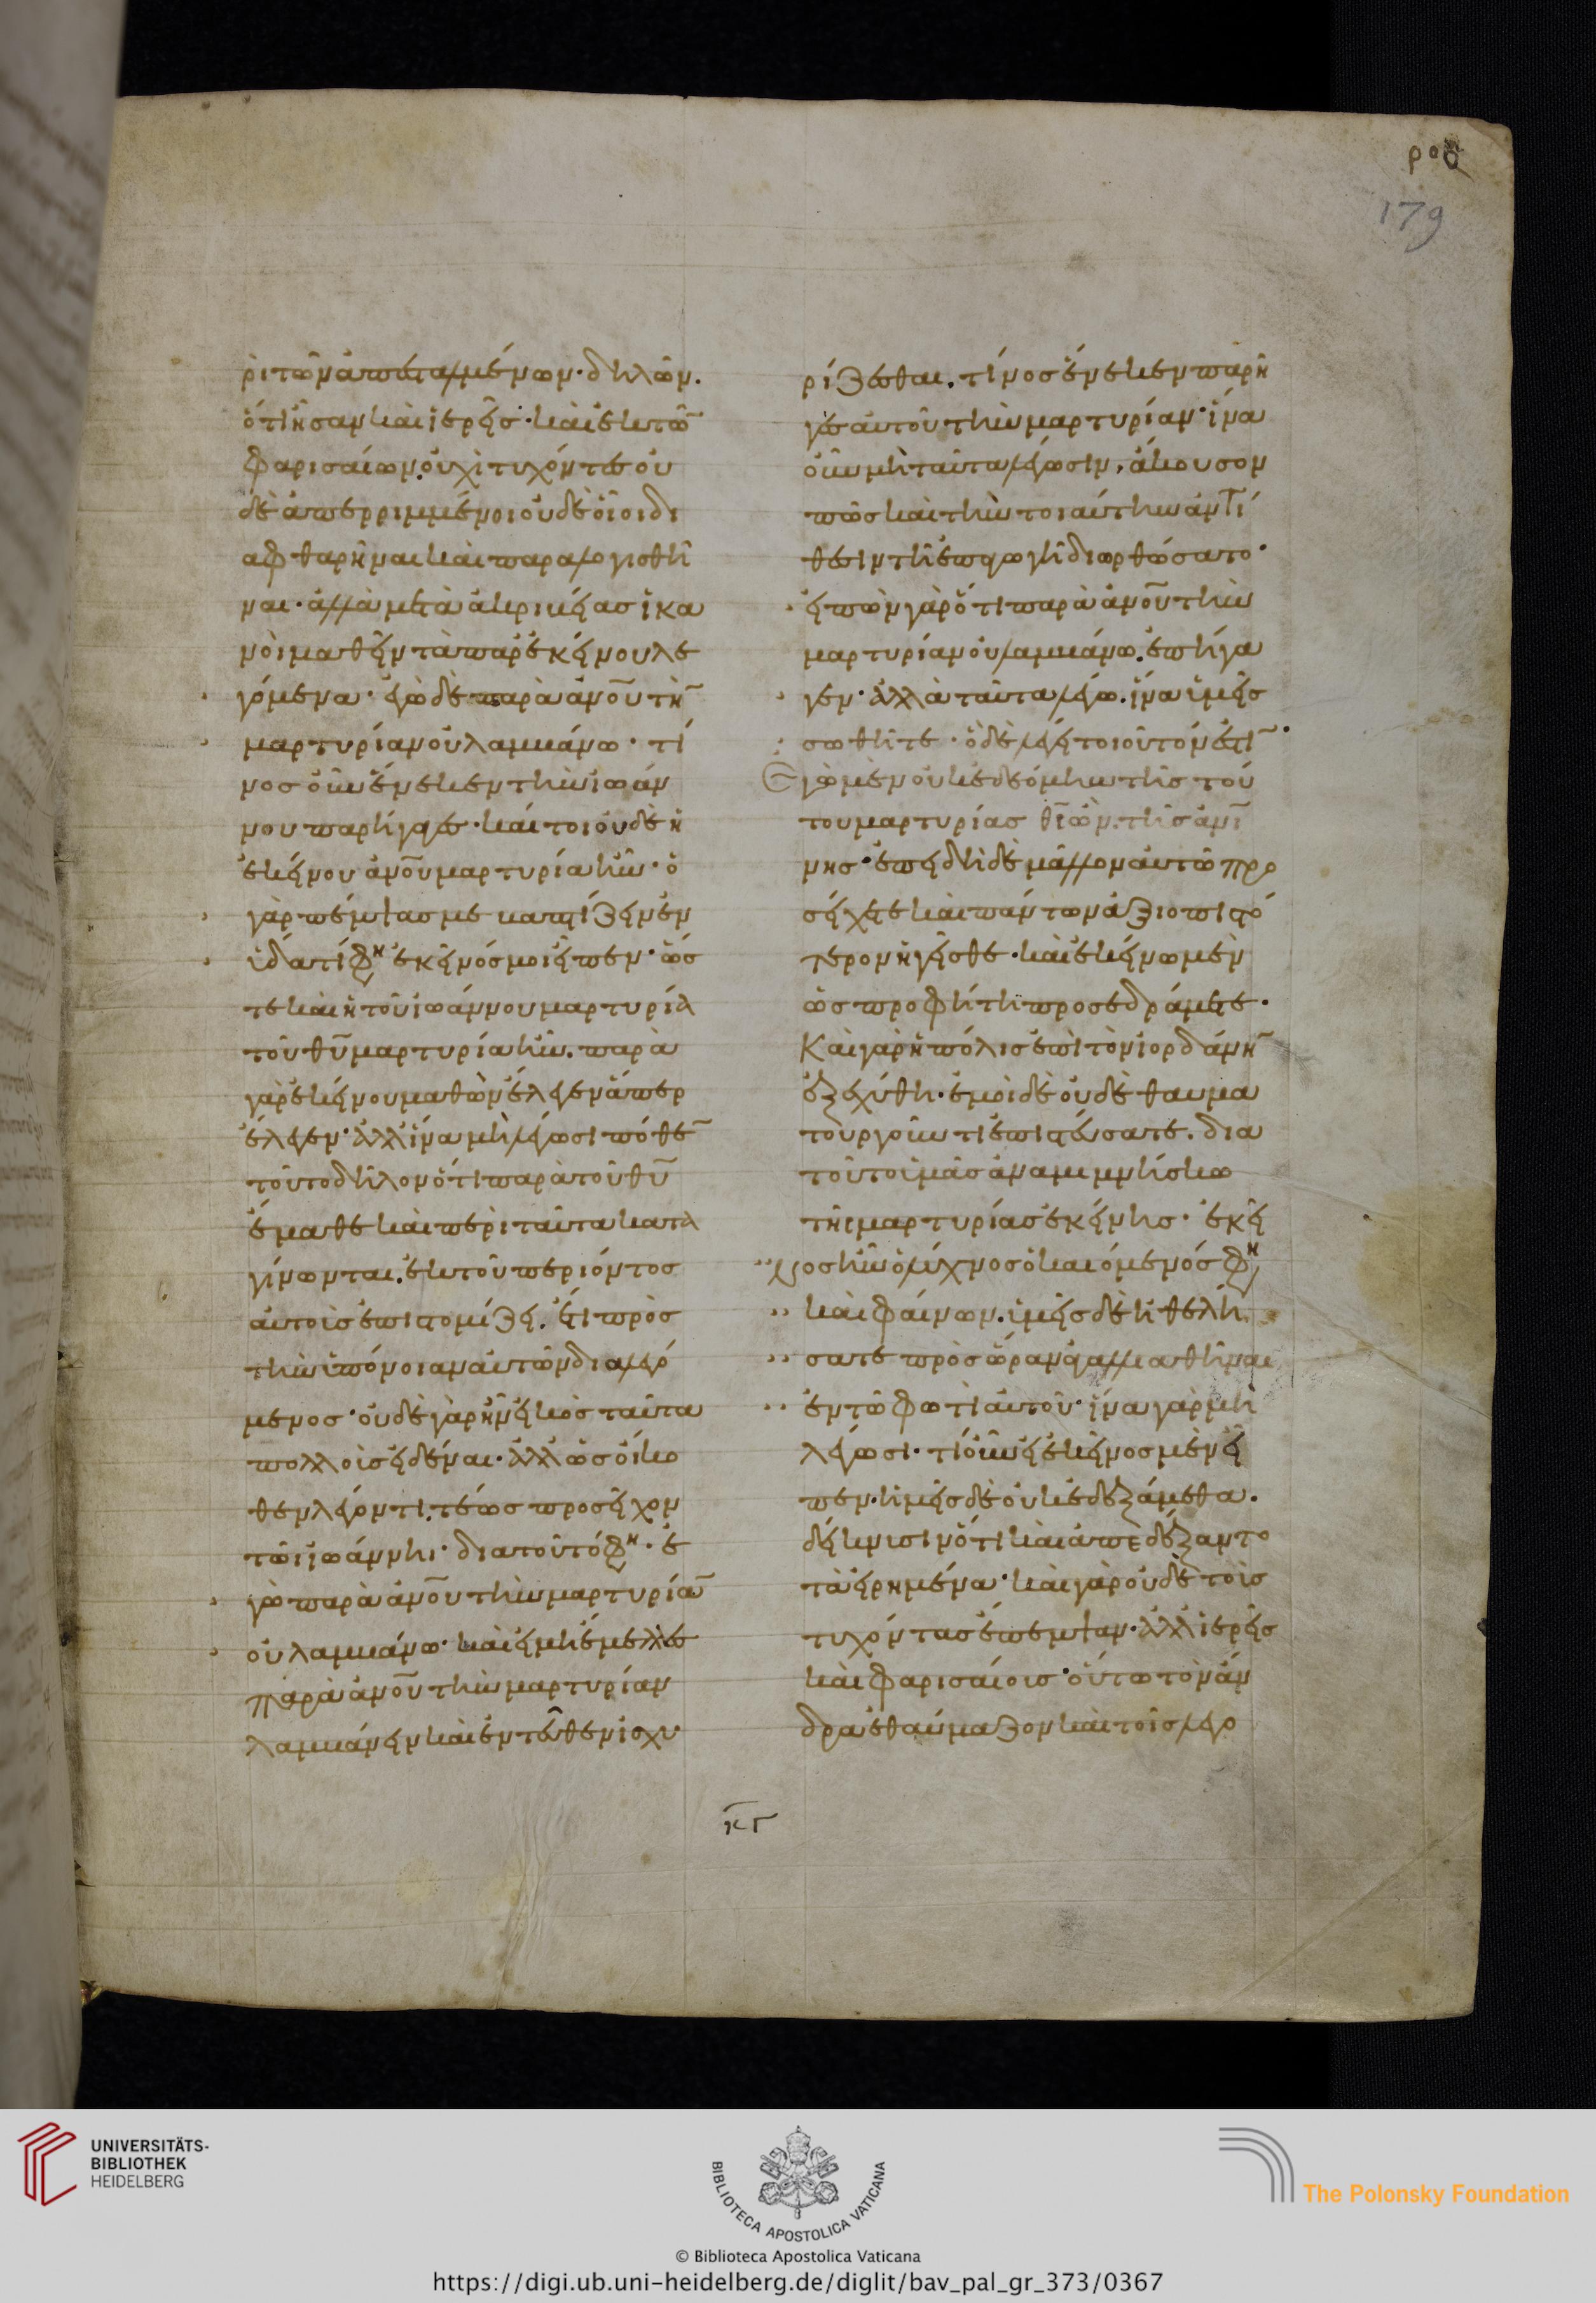 ρὶ τῶν ἀπεσταλμένων· δηλῶν.
ὅτι ἦσαν καὶ ἱερεῖς· καὶ ἐκ τῶ̅
φαρισαίων. οὐχὶ τυχόντες οὐ
δὲ ἀπερριμμένοι οὐδὲ οἷοι δι
αφθαρῆναι καὶ παραλογισθῆ
ναι· ἀλλὰ μετὰ ἀκριβείας ἱκα
νοὶ μαθεῖν τὰ παρ' ἐκείνου λε
γόμενα· ἐγὼ δὲ παρὰ ἀνο̅υ τὴ̅
μαρτυρίαν οὐ λαμβάνω· τί
νος οὖν ἕνεκεν τὴν ἰωάν
νου παρήγαγες· καίτοι οὐδὲ ἡ
ἐκείνου ἀνο̅υ μαρτυρία ἦν· ὁ
γὰρ πέμψας με βαπτίζειν ἐν
ὕδατί φη ἐκεῖνός μοι εἶπεν· ὥσ
τε καὶ ἡ τοῦ ἰωάννου μαρτυρία
τοῦ θυ̅ μαρτυρία ἦν. παρὰ
γὰρ ἐκείνου μαθὼν ἔλεγεν ἅπερ
ἔλεγεν· ἀλλ' ἵνα μὴ λέγωσι πόθε̅
τοῦτο δῆλον ὅτι παρὰ τοῦ θυ̅
ἔμαθε καὶ περὶ ταῦτα κατα
γίνωνται. ἐκ τοῦ περιόντος
αὐτοῖς ἐπιστομίζει. ἔτι πρὸς
τὴν ὑπόνοιαν αὐτῶν διαλεγό
μενος· οὐδὲ γὰρ ἦν εἰκὸς ταῦτα
πολλοῖς εἰδέναι· ἀλλ' ὡς οἴκο
θεν λέγοντι. τέως προσεῖχον
τῶι ἰωάννηι· διατοῦτό φη· ἐ
γὼ παρὰ ἀνο̅υ τὴν μαρτυρία̅
οὐ λαμβάνω· καὶ εἰ μὴ ἔμελλες
παρὰ ἀνο̅υ τὴν μαρτυρίαν
λαμβάνειν καὶ ἐντεῦθεν ἰσχυ
ρος
179
ρίζεσθαι. τίνος ἕνεκεν παρή
γες αὐτοῦ τὴν μαρτυρίαν· ἵνα
οὖν μὴ ταῦτα λέγωσιν, ἄκουσον
πῶς καὶ τὴν τοιαύτην ἀντί
θεσιν τῇ ἐπαγωγῇ διωρθώσατο·
εἰπὼν γὰρ ὅτι παρὰ ἀνο̅υ τὴν
μαρτυρίαν οὐ λαμβάνω. ἐπήγα
γεν· ἀλλὰ ταῦτα λέγω. ἵνα ὑμεῖς
σωθῆτε· ὃ δὲ λέγει τοιοῦτόν ἐστι̅·
Ἐγὼ μὲν οὐκ ἐδεόμην τῆς τού
του μαρτυρίας θς̅ ὢν. τῆς ἀνί̅
νης· ἐπειδὴ δὲ μᾶλλον αὐτῷ προ
σέχετε καὶ πάντων ἀξιοπιστό
τερον ἡγεῖσθε· καὶ ἐκείνω μὲν
ὡς προφήτη προσεδράμετε·
Καὶ γὰρ ἡ πόλις ἐπὶ τὸν ἰορδάνη̅
ἐξεχύθη· ἐμοὶ δὲ οὐδὲ θαυμα
τουργοῦντι ἐπιστεύσατε. δια
τοῦτο ὑμᾶς ἀναμιμνήσκω
τῆς μαρτυρίας ἐκείνης· ἐκεῖ
νος ἦν ὁ λύχνος ὁ καιόμενός φη
καὶ φαίνων. ὑμεῖς δὲ ἠθελή
σατε πρὸς ὥραν ἀγαλλιαθῆναι
ἐν τῷ φωτὶ αὐτοῦ· ἵνα γὰρ μὴ
λέγωσι· τί οὖν εἰ ἐκεῖνος μὲν εἶ
πεν· ἡμεῖς δὲ οὐκ ἐδεξάμεθα.
δείκνυσιν ὅτι καὶ ἀπεδέξαντο
τὰ εἰρημένα· καὶ γὰρ οὐδὲ τοὺς
τυχόντας ἔπεμψαν· ἀλλ' ἱερεῖς
καὶ φαρισαίους· οὕτω τὸν ἄν
δρα ἐθαύμαζον καὶ τοῖς λεγο
κγ
UNIVERSITÄTS-
BIBLIOTHEK
HEIDELBERG
BIBLIOTECA APOSTOLICA VATICANA
© Biblioteca Apostolica Vaticana
The Polonsky Foundation
https://digi.ub.uni-heidelberg.de/diglit/bav_pal_gr_373/0367